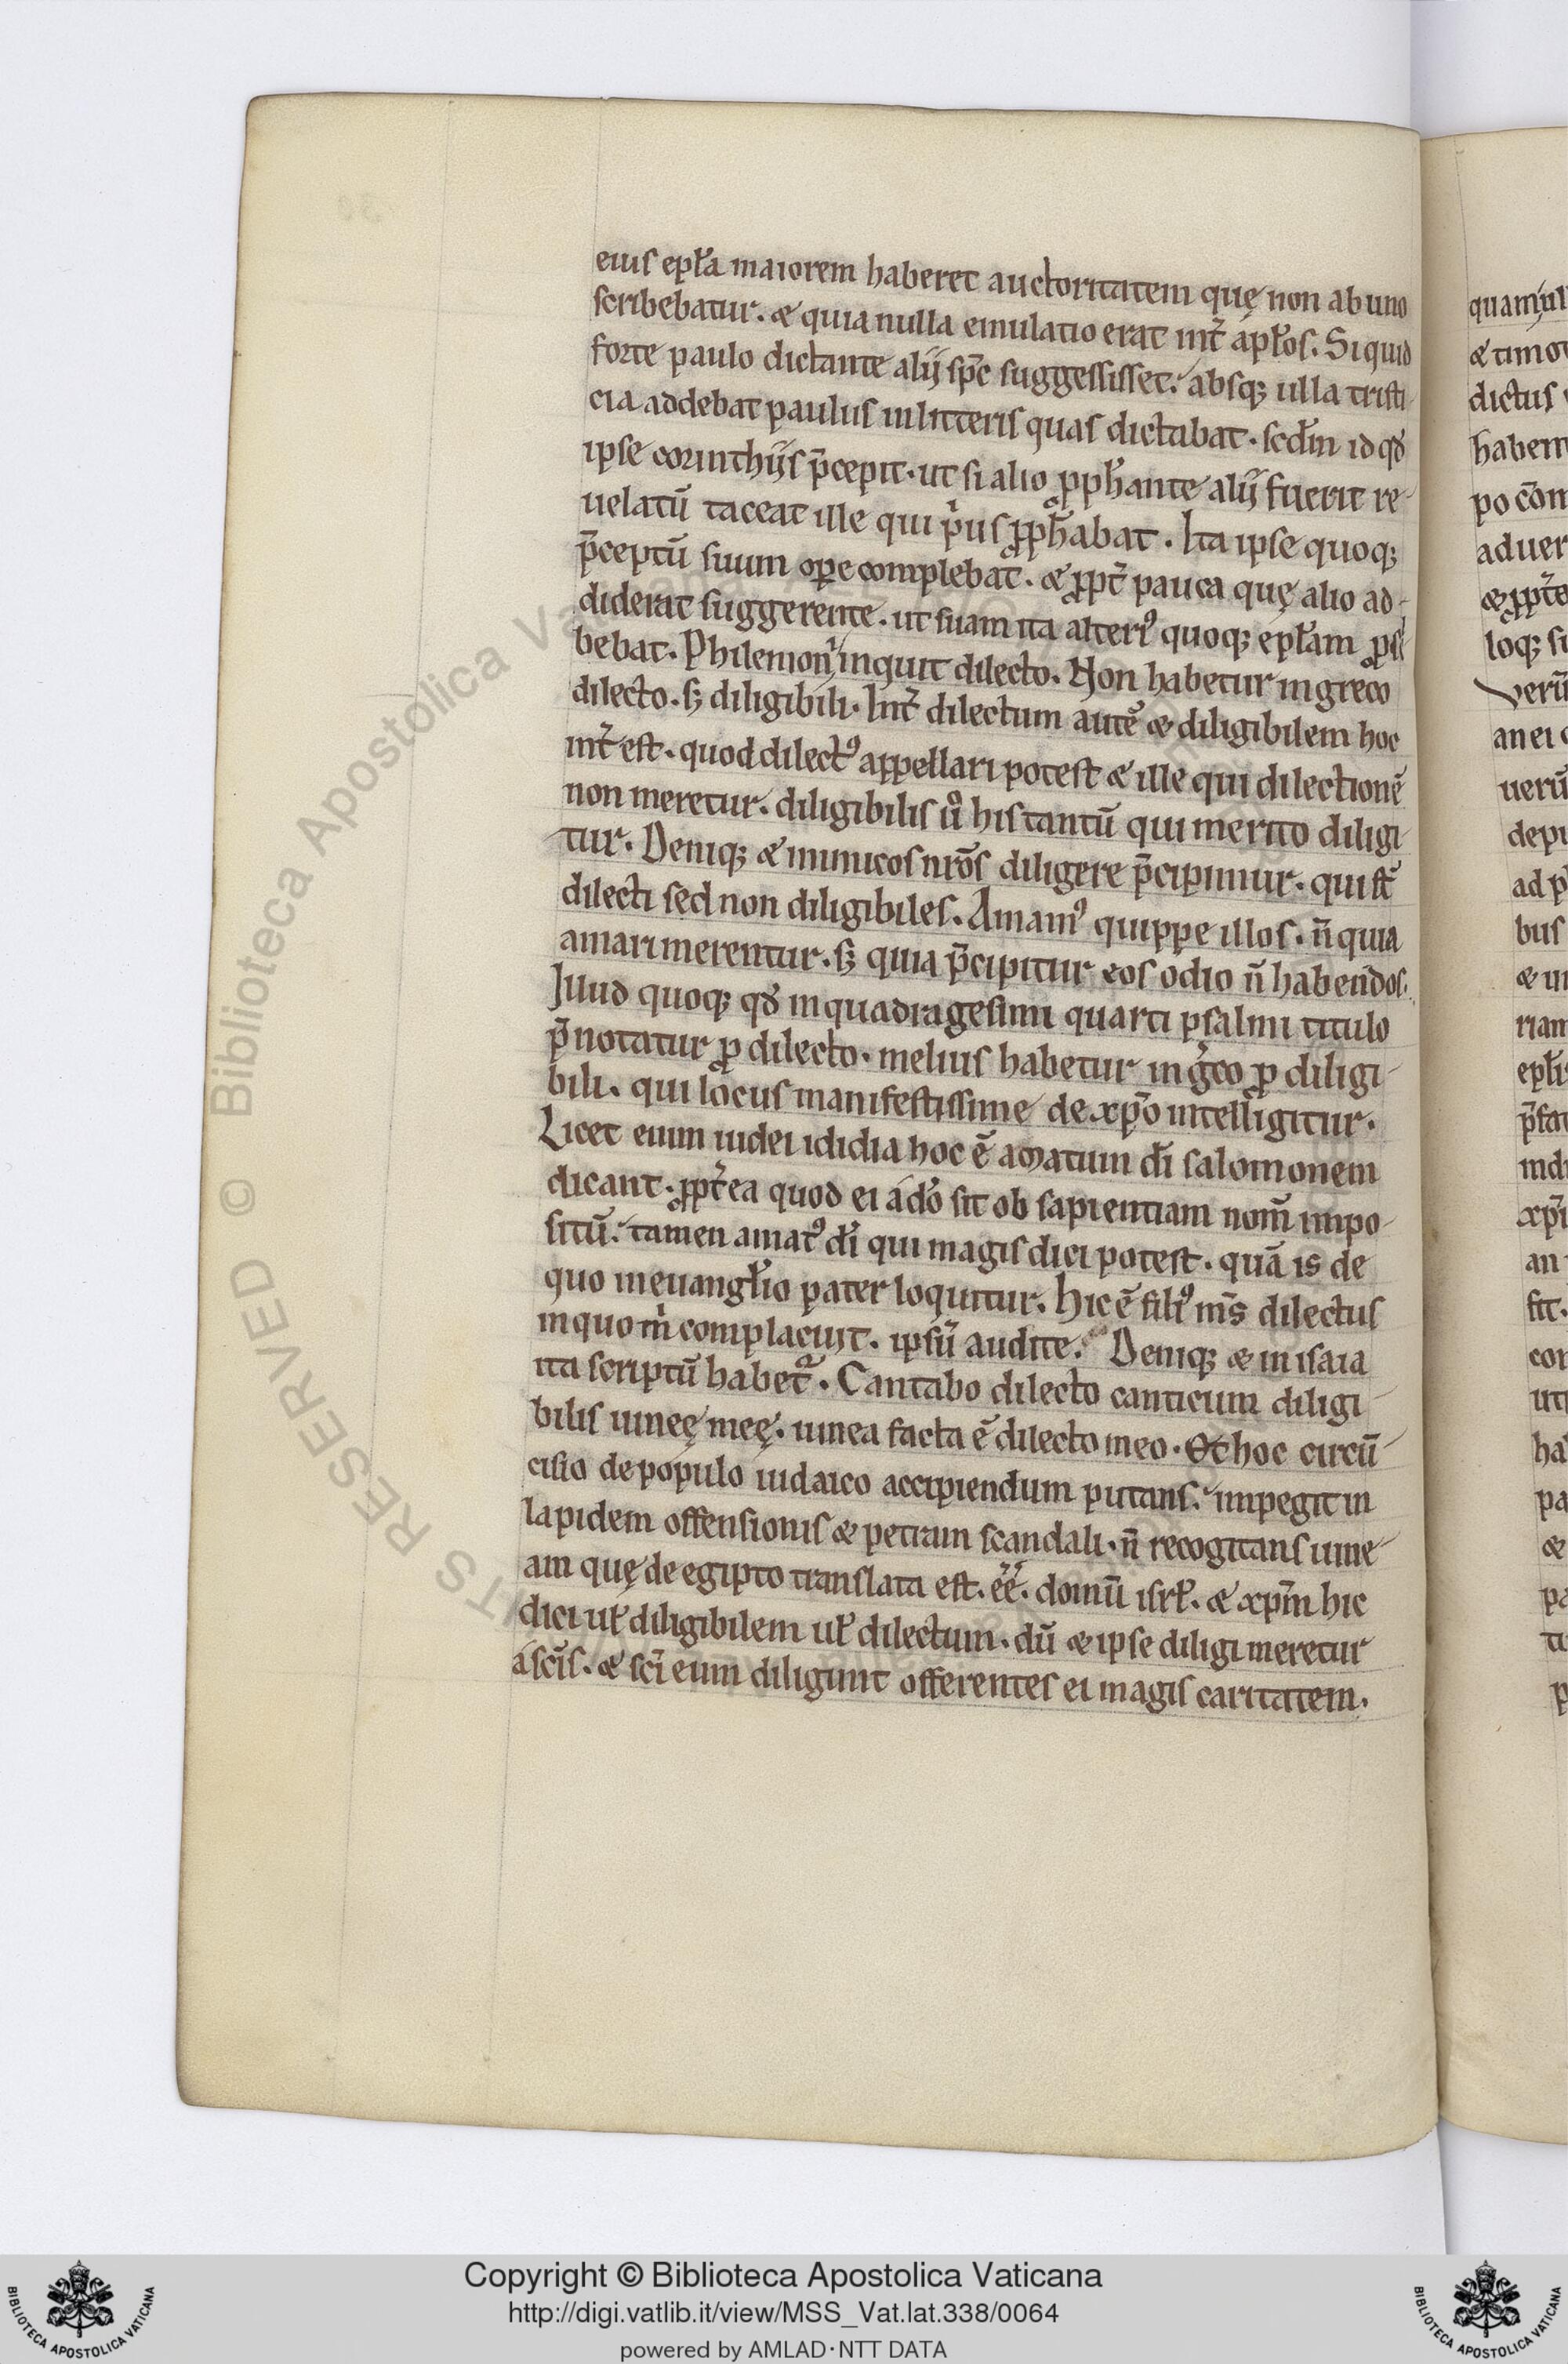 eius epl̅a maiorem haberet auctoritatem quę non ab uno
scribebatur. & quia nulla emulatio erat int̅ apl̅os. Si quid
forte paulo dictante alij sp̅c suggessisset: absq; ulla tristi-
cia addebat paulus in litteris quas dictabat. scdm̅ id qd̅
ipse corinthijs p̅cepit. ut si alio ꝓph̅ante alij fuerit re-
uelatū taceat ille qui pͥus ꝓph̅abat. Ita ipse quoq;
p̅ceptū suum oꝑe complebat. & ꝓpt̅ pauca quę alio ad-
diderat suggerente. ut suam ita alteriꝰ quoq; epl̅am
bebat. Philemoni inquit dilecto. Non habetur in greco
dilecto. s; diligibili. Int̅ dilectum autē & diligibilem hoc
int̅est. quod dilectꝰ appellari potest & ille qui dilectionē
non meretur. diligibilis uͦ his tantū qui merito diligi-
tur. Deniq; & inimicos nr̅os diligere p̅cipimur. qui st̅
dilecti sed non diligibiles. Amamꝰ quippe illos. n̅ quia
amari merentur. s; quia p̅cipitur eos odio n̅ habendos.
Illud quoq; qd̅ in quadragesimi quarti psalmi titulo
p̅notatur ꝓ dilecto. melius habetur in gͤco ꝓ diligi-
bili. qui locus manifestissime de xp̅o intelligitur.
Licet enim iudei ididia hoc ē amatum di̅ salomonem
dicant. ꝓpt̅ea quod ei a do̅ sit ob sapientiam nom̅ impo-
situ̅: tamen amatꝰ di̅ qui magis dici potest. quā is de
quo in euangl̅io pater loquitur. Hic ē filiꝰ ms̅ dilectus
in quo mͥ complacuit. ipsū audite. Deniq; & in isaia
ita scriptū habet᷑. Cantabo dilecto canticum diligi-
bilis uineę meę. uinea facta ē dilecto meo. Et hoc circū-
cisio de populo iudaico accipiendum putans: impegit in
lapidem offensionis & petram scandali. n̅ recogitans uine-
am quę de egipto translata est. ee̅. domū isrl̅. & xpm̅ hic
dici ul̅ diligibilem ul̅ dilectum. dū & ipse diligi meretur
a sci̅s. & sci̅ eum diligunt offerentes ei magis caritatem.
Copyright © Biblioteca Apostolica Vaticana
http://digi.vatlib.it/view/MSS_Vat.lat.338/0064
powered by AMLAD·NTT DATA